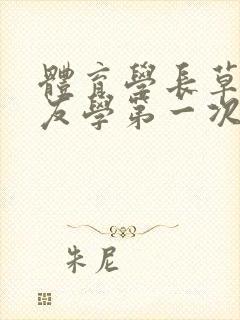 體育學長草
友學第一次
朱尼